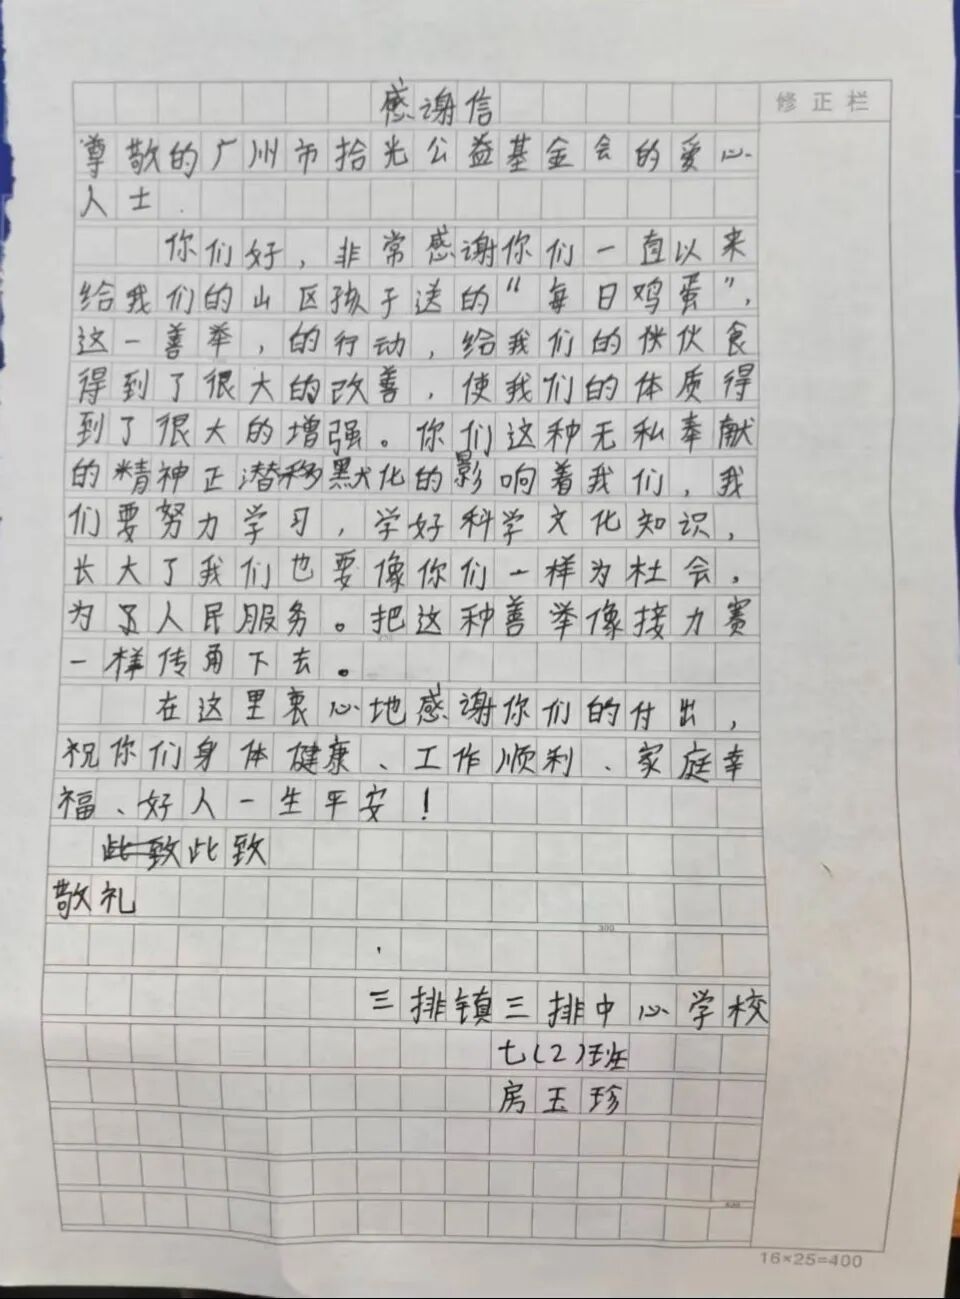 感谢信
修正栏
尊敬的广州市拾光公益基金会的爱心
人士.
你们好,非常感谢你们一直以来
给我们的山区孩子送的“每日鸡蛋”,
这一善举,的行动,给我们的伙伙食
得到了很大的改善,使我们的体质得
到了很大的增强。你们这种无私奉献
的精神正潜移默化的影响着我们,我
们要努力学习,学好科学文化知识,
长大了我们也要像你们一样为社会,
为了人民服务。把这种善举像接力赛
一样传角下去。
在这里衷心地感谢你们的付出,
祝你们身体健康、工作顺利、家庭幸
福、好人一生平安!
此致此致
敬礼
300
三排镇三排中心学校
七(2)班
房玉珍
16×25=400